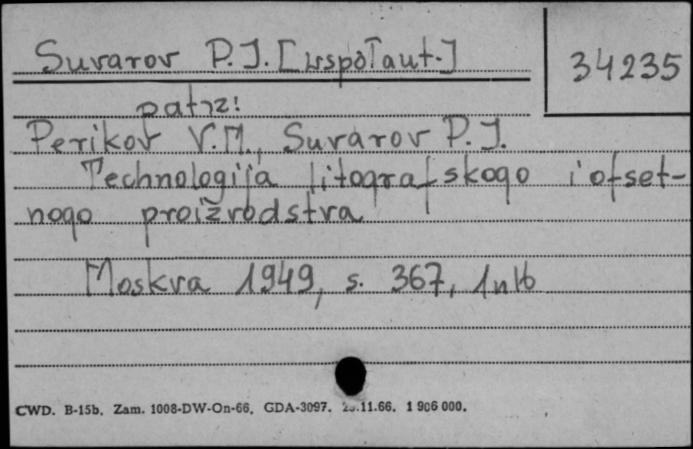 Suvarov P.J. [współaut.]
34235
patrz:
Perikov V.M., Suvarov P.J.
Technologija litografskogo i ofset-
nogo proizvodstva
Moskva 1949, s. 367, 1 nlb
CWD. B-15b. Zam. 1008-DW-On-66. GDA-3097. .11.66. 1 906 000.